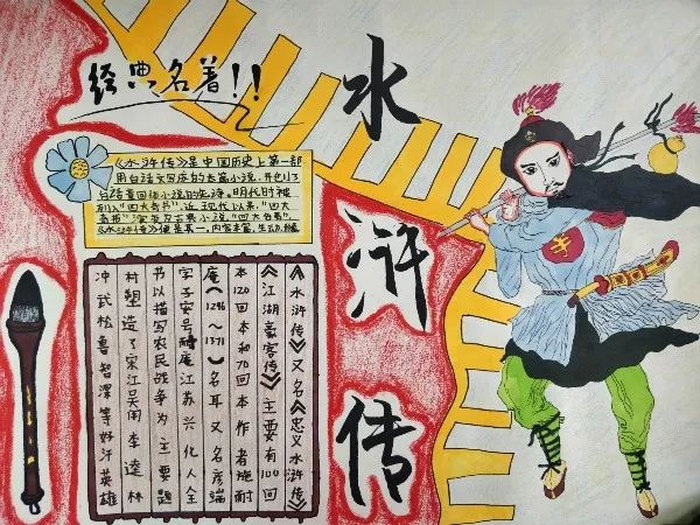 经典名著!!
水浒传
《水浒传》是中国历史上第一部
用白话文写成的长篇小说,开创了
白话章回体小说的先河。明代时被
列入“四大奇书”,近现代以来,“四大
奇书”演变为古典小说“四大名著”,
《水浒传》便是其一,内容丰富,生动
《水浒传》又名《忠义水浒传》
《江湖豪客传》主要有100回
本120回本和70回本作者施耐
庵(1296～1371)名耳又名彦端
字子安号耐庵江苏兴化人全
书以描写农民战争为主要题
村塑造了宋江吴用李逵林
冲武松鲁智深等好汉英雄